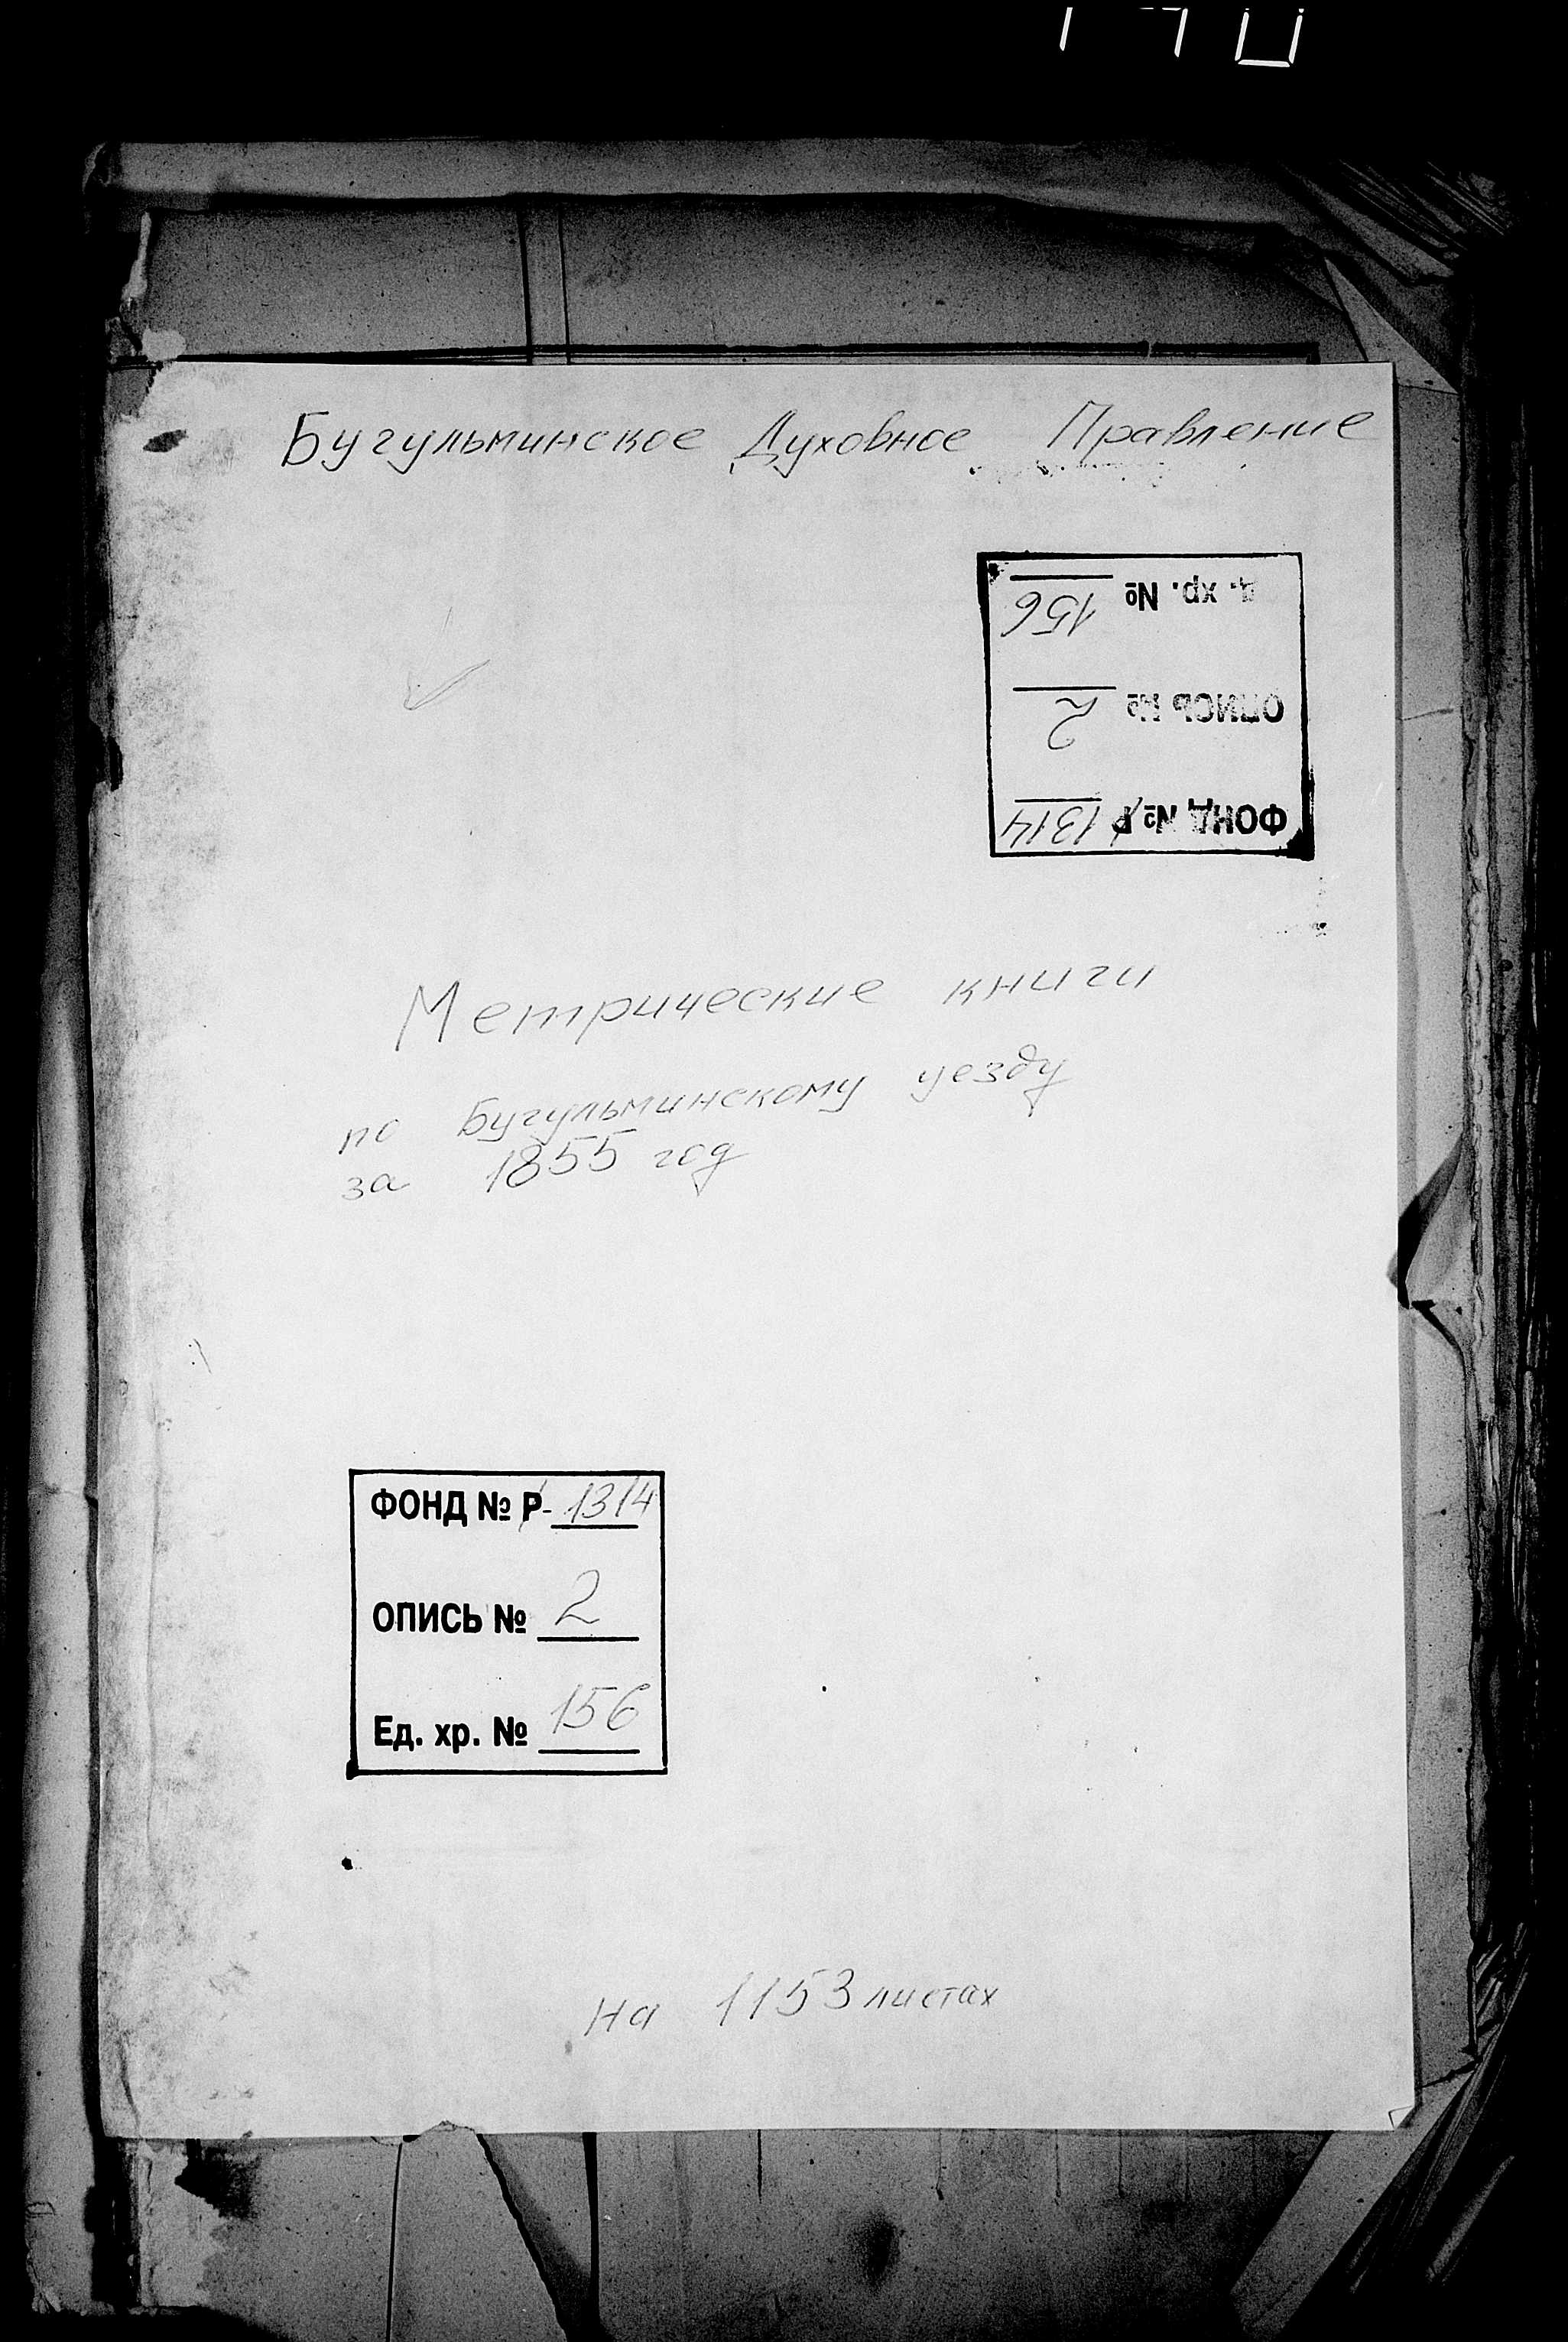 Бугульминское Духовное Правление
ФОНД № Р 1314
ОПИСЬ № 2
хр. № 156
Метрические книги
по Бугульминскому уезду
за 1855 год
ФОНД № Р- 1314
ОПИСЬ № 2
Ед. хр. № 156
На 1153 листах